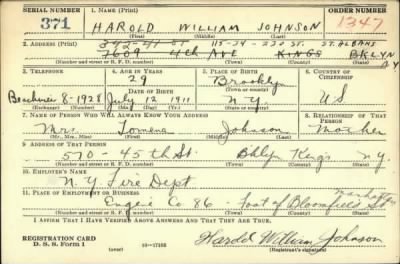 SERIAL NUMBER 1. NAME (Print) ORDER NUMBER
371 HAROLD WILLIAM JOHNSON 1347
(First) (Middle) (Last)
2. ADDRESS (Print) 115-24 - 230 ST. ST. ALBANS
7609 4th AVE KINGS BKLYN N.Y
(Number and street or R. F. D. number) (Town) (County) (State)
3. TELEPHONE 4. AGE IN YEARS 5. PLACE OF BIRTH 6. COUNTRY OF CITIZENSHIP
29 Brooklyn
DATE OF BIRTH (Town or county)
8-1928 July 12 1911 N.Y. U S
(Exchange) (Number) (Mo.) (Day) (Yr.) (State or country)
7. NAME OF PERSON WHO WILL ALWAYS KNOW YOUR ADDRESS 8. RELATIONSHIP OF THAT PERSON
Mrs. Johnson Mother
(Mr., Mrs., Miss) (First) (Middle) (Last)
9. ADDRESS OF THAT PERSON
570 - 45th St. Bklyn Kings N.Y.
(Number and street or R. F. D. number) (Town) (County) (State)
10. EMPLOYER'S NAME
N. Y. Fire Dept
11. PLACE OF EMPLOYMENT OR BUSINESS Manhattan
Engine Co 86 - Foot of Bloomfield St
(Number and street or R. F. D. number) (Town) (County) (State)
I AFFIRM THAT I HAVE VERIFIED ABOVE ANSWERS AND THAT THEY ARE TRUE.
REGISTRATION CARD
D. S. S. Form 1 (over) 16-17105 Harold William Johnson
(Registrant's signature)